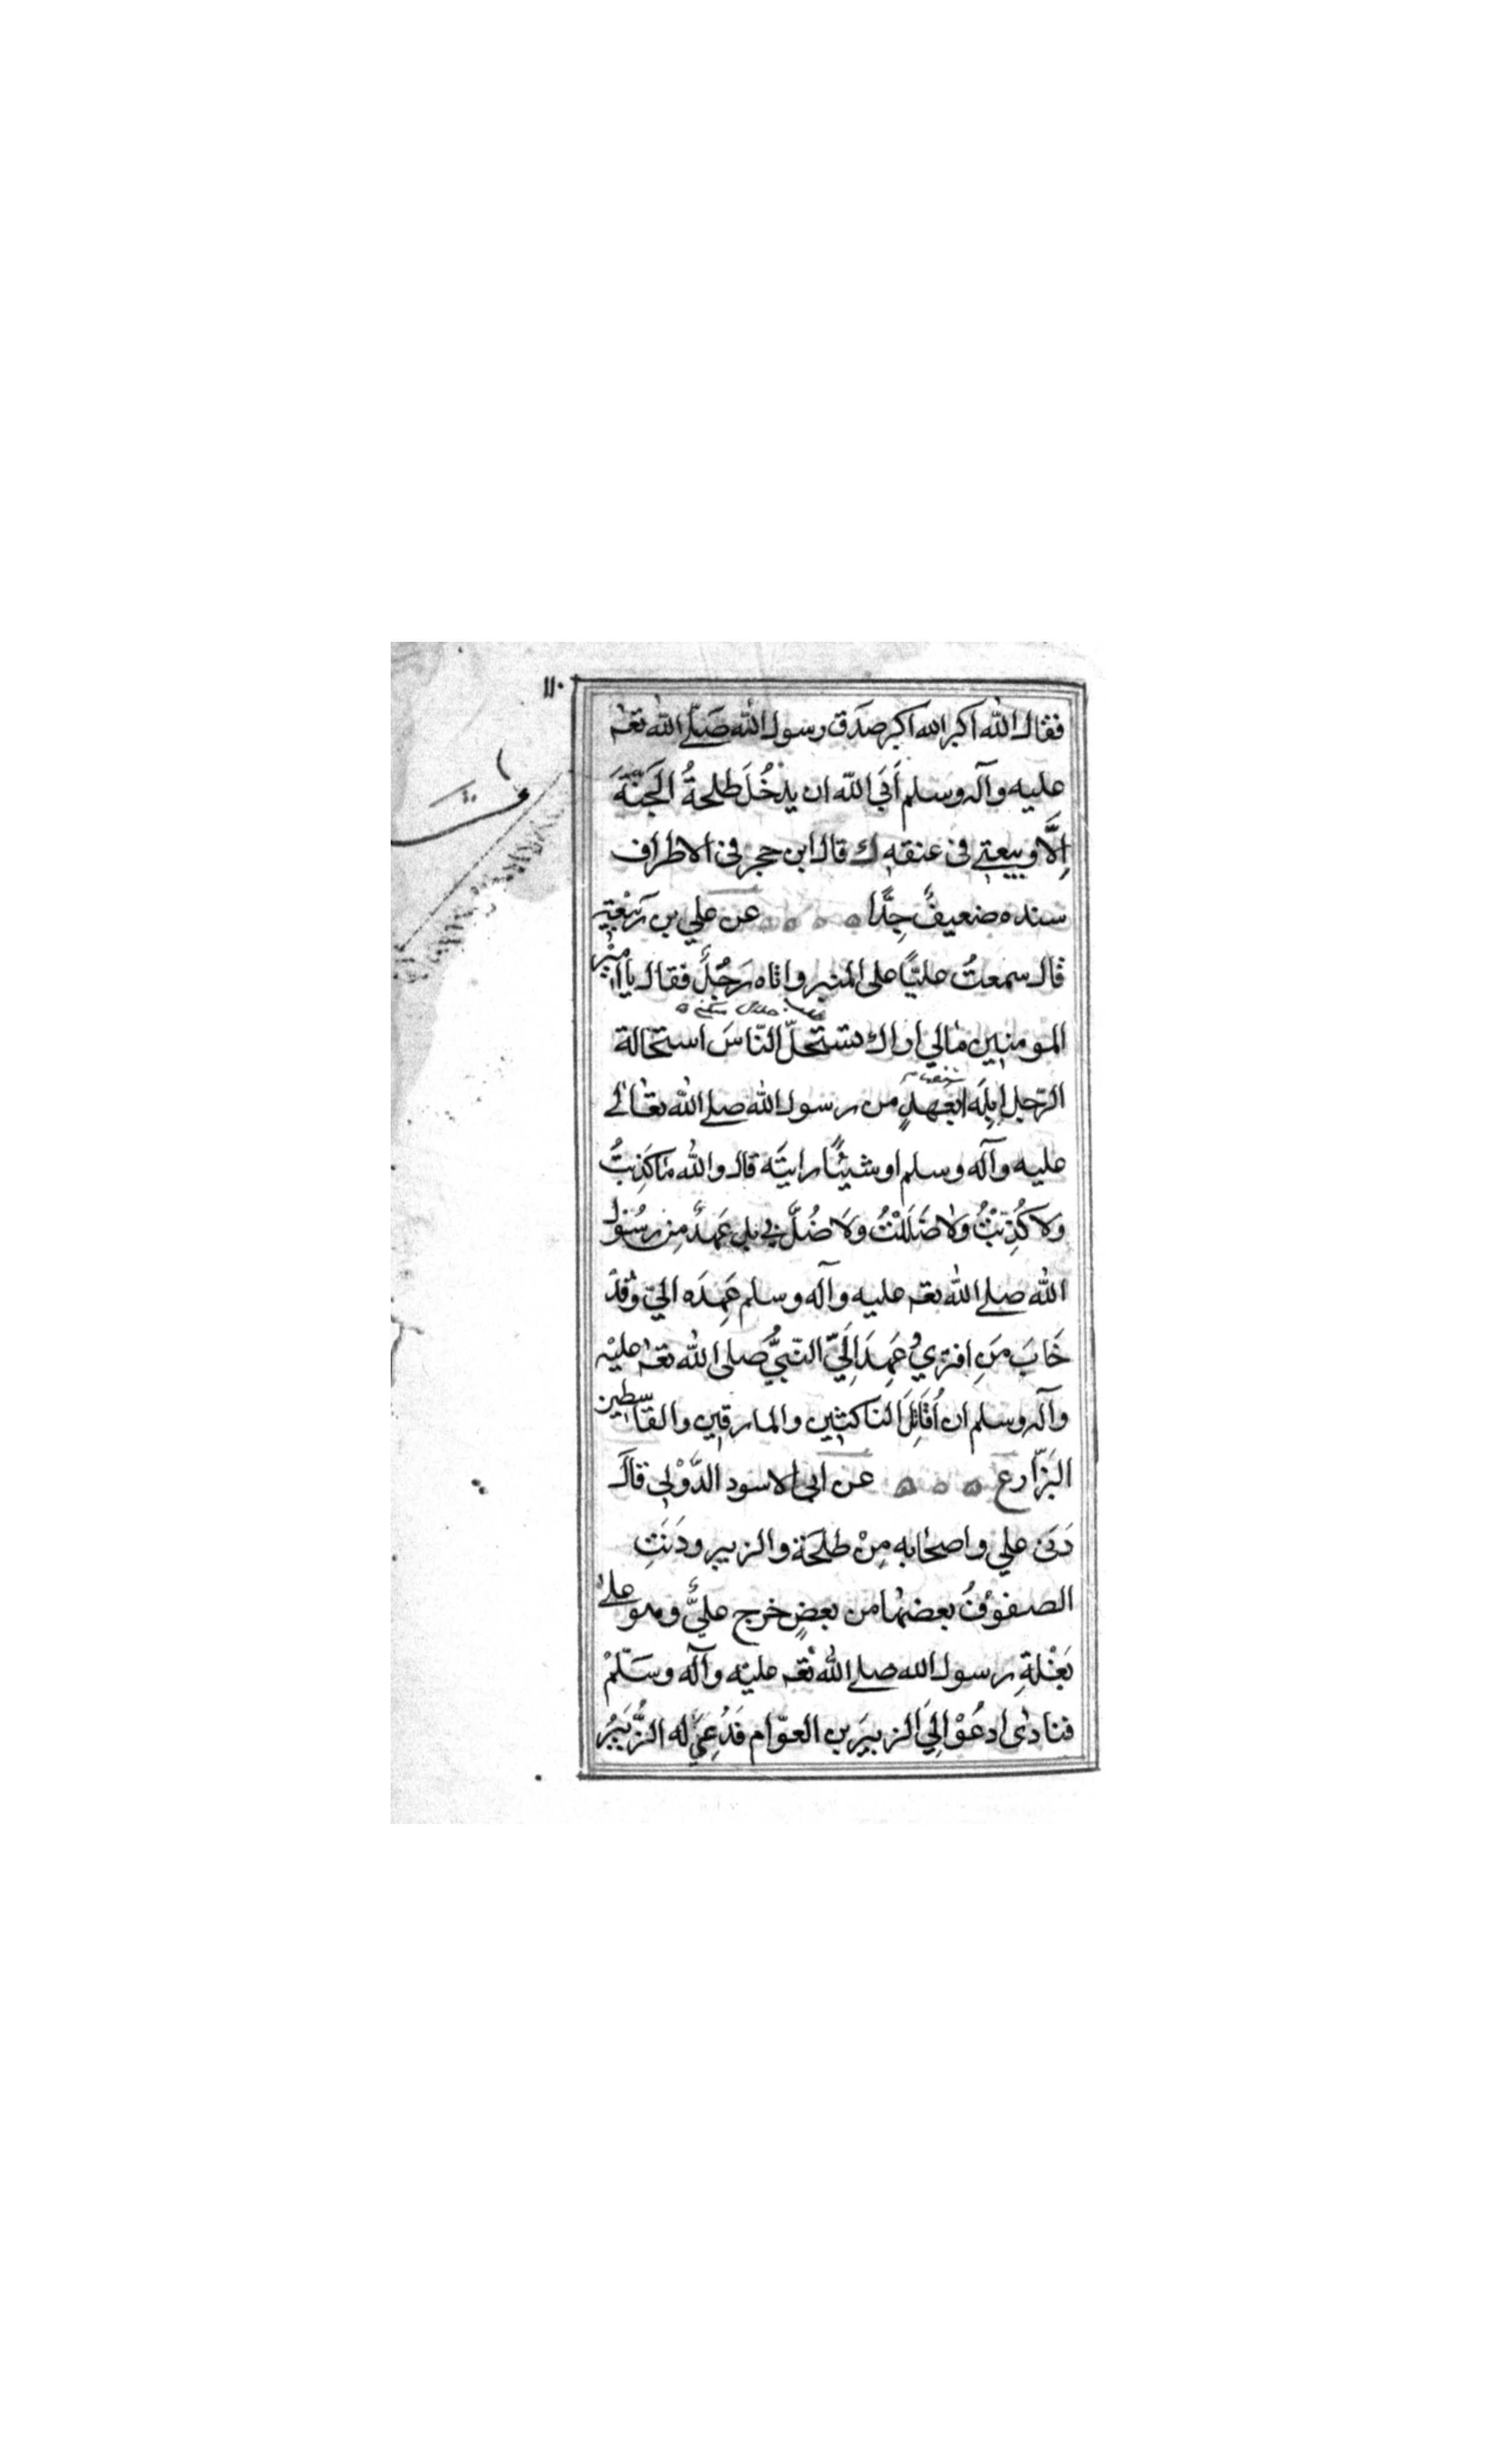 ١١٠
فقال الله اكبر الله اكبر صدق رسول الله صَلّے الله تعہ
عليه وآله وسلم أَبَى اللّه ان يدْخُلَ طلحةُ الْجَنّةَ
اِلَّا وبيعتے فى عنقه ك قال ابن حجر فى الاطراف
سنده ضعيفٌ جِدًّا ه ه ه ه عن علي بن رَبيْعَةِ
قال سمعتُ عليّاً على المنبر واتاه رَجُلٌ فقال يا امير
المومنين مالي اراك تستحلّ النّاسَ استحالة
الرّجل اِبِلَه ابعهدٍ من رسول الله صلے الله تعالے
عليه وآله وسلم او شيئًا رايتَه قال والله ما كَذِبتُ
ولا كُذِبْتُ ولا ضَلَلْتُ ولا ضُلَّ بي بل عَهدٌ مِن رسُول
الله صلے الله تعہ عليه وآله وسلم عَهِدَه اليّ وقدْ
خَابَ مَنِ افتري عَهِدَ اِلَيّ النّبيُّ صلى الله تعہ عليْه
وآله وسلم ان اُقَاتِلَ الناكثين والمارقين والقاسطين
البَزّارع ه ه ه عن ابى الاسود الدَّوْلي قالَ
دَنَى علي واصحابه مِنْ طلحَة والزبير ودَنَتِ
الصفوْفُ بعضها من بعضٍ خرج عليٌّ وهو علے
بَغْلةِ رسول الله صلے الله تعہ عليْه وآله وسَلّمْ
فنادٰى ادعُوْ اِلَيَ الزبيرَ بن العوّام فَدُعِيَ له الزُّبَيْرُ